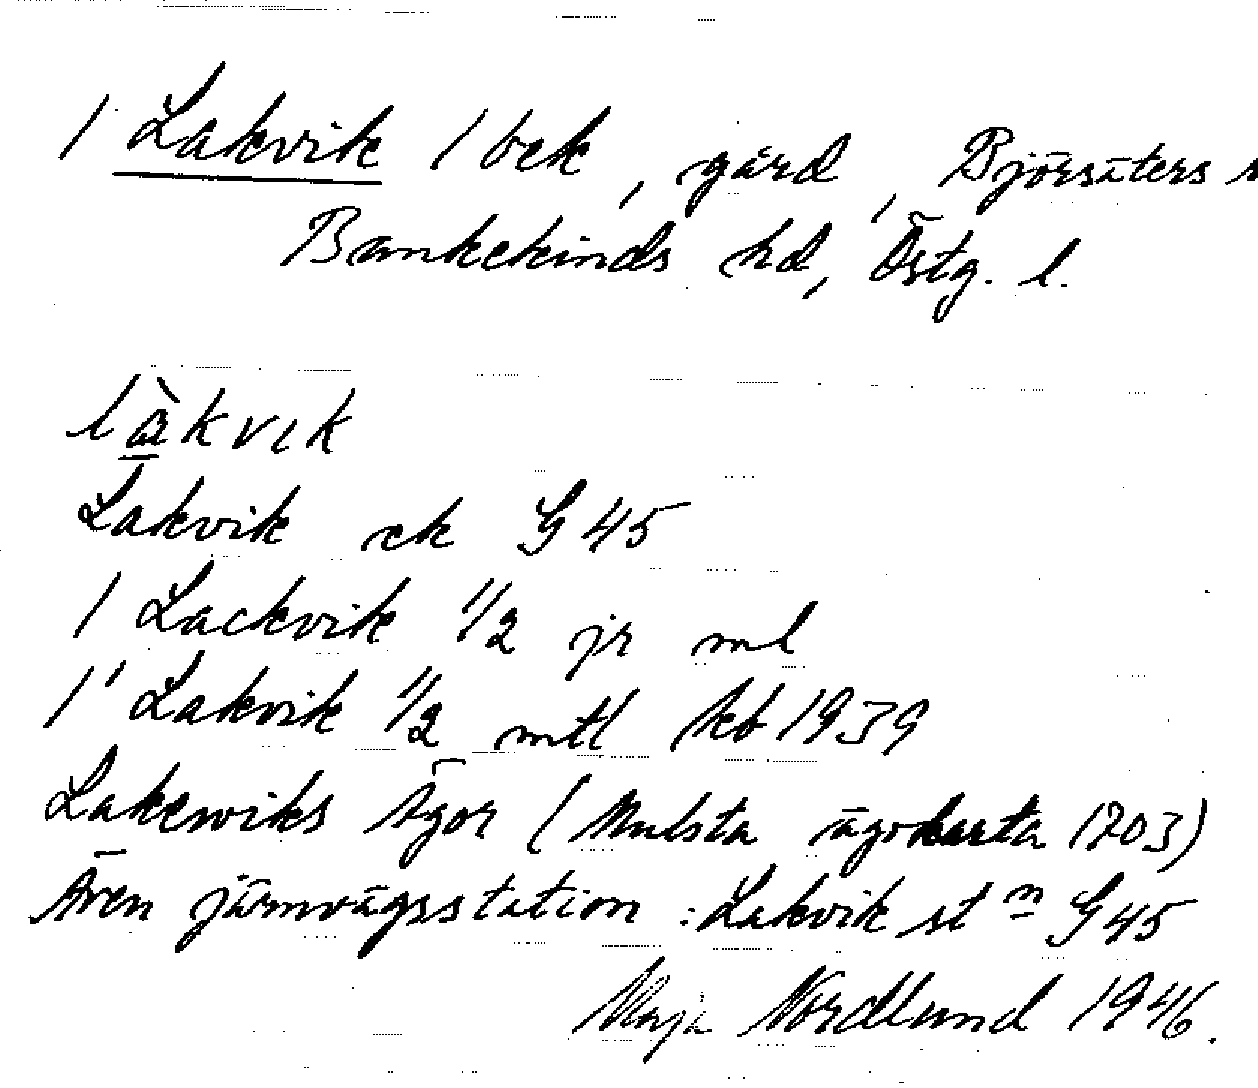 1 Lakvik 1 bek, gård, Björsäters s
Bankekinds hd, Östg. l.
làkvik
Lakvik ek G 45
1 Lackvik 1/2 jr ml
1' Lakvik 1/2 mtl kb 1939
Lakewiks Ägor (Mulsta ägokarta 1703)
Även järnvägsstation : Lakvik st n G 45
Maja Nordlund 1946.